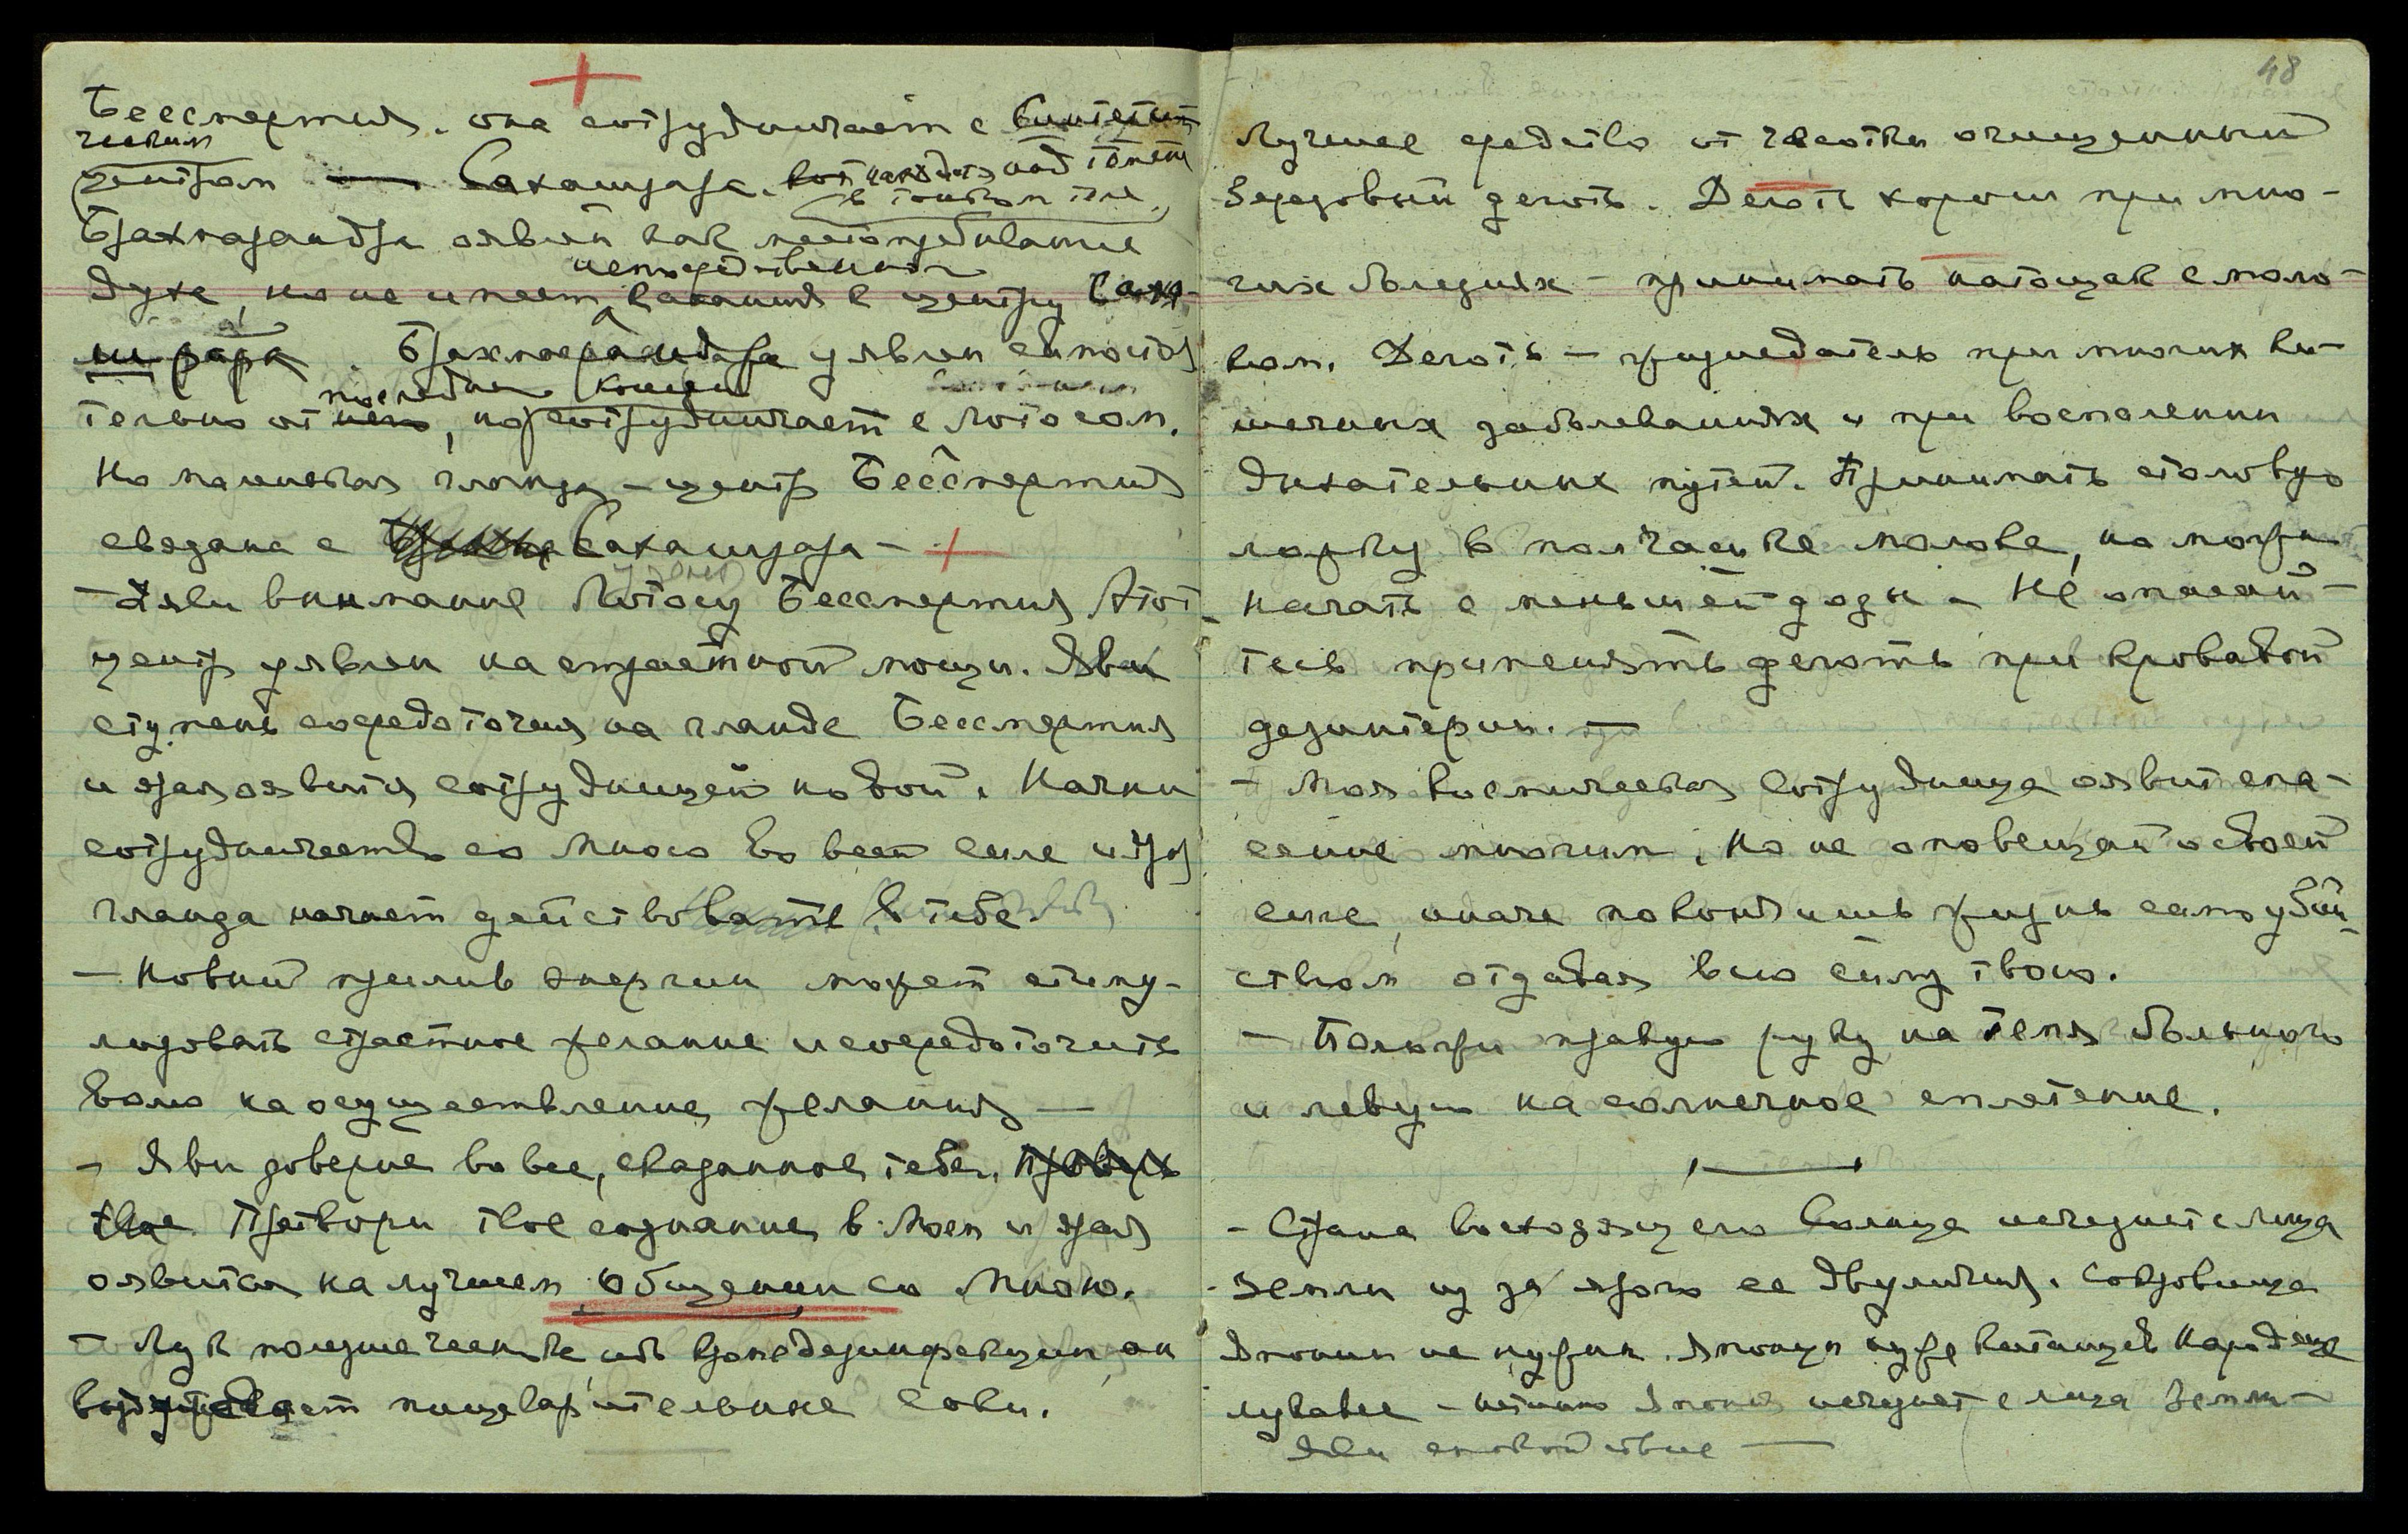 Бессмертия. она сотрудничает с Синтетич
ческим
центром — Сахасрара. находится над темем
в тонком теле.
Брахмарандра явлен как местопребывание
непосредственного
духа, но не имеет касания к центру Саха-
срара. Брахмарандра уявлен самостоя
последнего
тельно от него, но сотрудничает с Лотосом.
Но мамиевая гланда — центр Бессмертия
связана с Сахасрара —
— Яви внимание Лотосу Бессмертия Этот
центр уявлен на страстной мощи. Яви
ступень сосредоточия на гланде Бессмертия
и явится сотрудницей новой. Начни
сотрудничать со Мною во всей силе и
гланда начнет действовать в тебе.
— Новый прилив энергии может стиму-
лировать страстное желание и сосредоточить
Волю на осуществление желания —
— Яви доверие во все, сказанное тебе.
твое Претвори твое сознание в Моем и
явится на лучшем общении со Мною.
— Лук полезнее чеснока, как дезинфекция, он
пищеварительные соки.
48
Лучшее средство от чесотки очищенный
березовый деготь. Деготь хорош при мно-
гих болезнях — принимать натощак с моло-
ком. Деготь — жизнедатель при многих ки-
шечных заболеваниях и при воспалении
дыхательных путей. Принимать столовую
ложку в полчашке молока, но можно
начать с меньшей дозы — Не опасай-
тесь применять деготь при кровавой
дезинтерии. —
— Моя Космическая Сотрудница явит спа-
сение многим. Но не оповещай о своей
силе, иначе покончишь жизнь самоубий-
ством отдавая всю силу твою.
— Положи правую руку на темя больного
и левую на солнечное сплетение.
— Страна восходящего Солнца исчезнет с лица
Земли из за ярого ее двуличия. Сокровища
Японии не нужны. Японцы хуже китайцев Народ еще
лукавее — истинно Япония исчезнет с лица Земли —
Яви спокойствие —